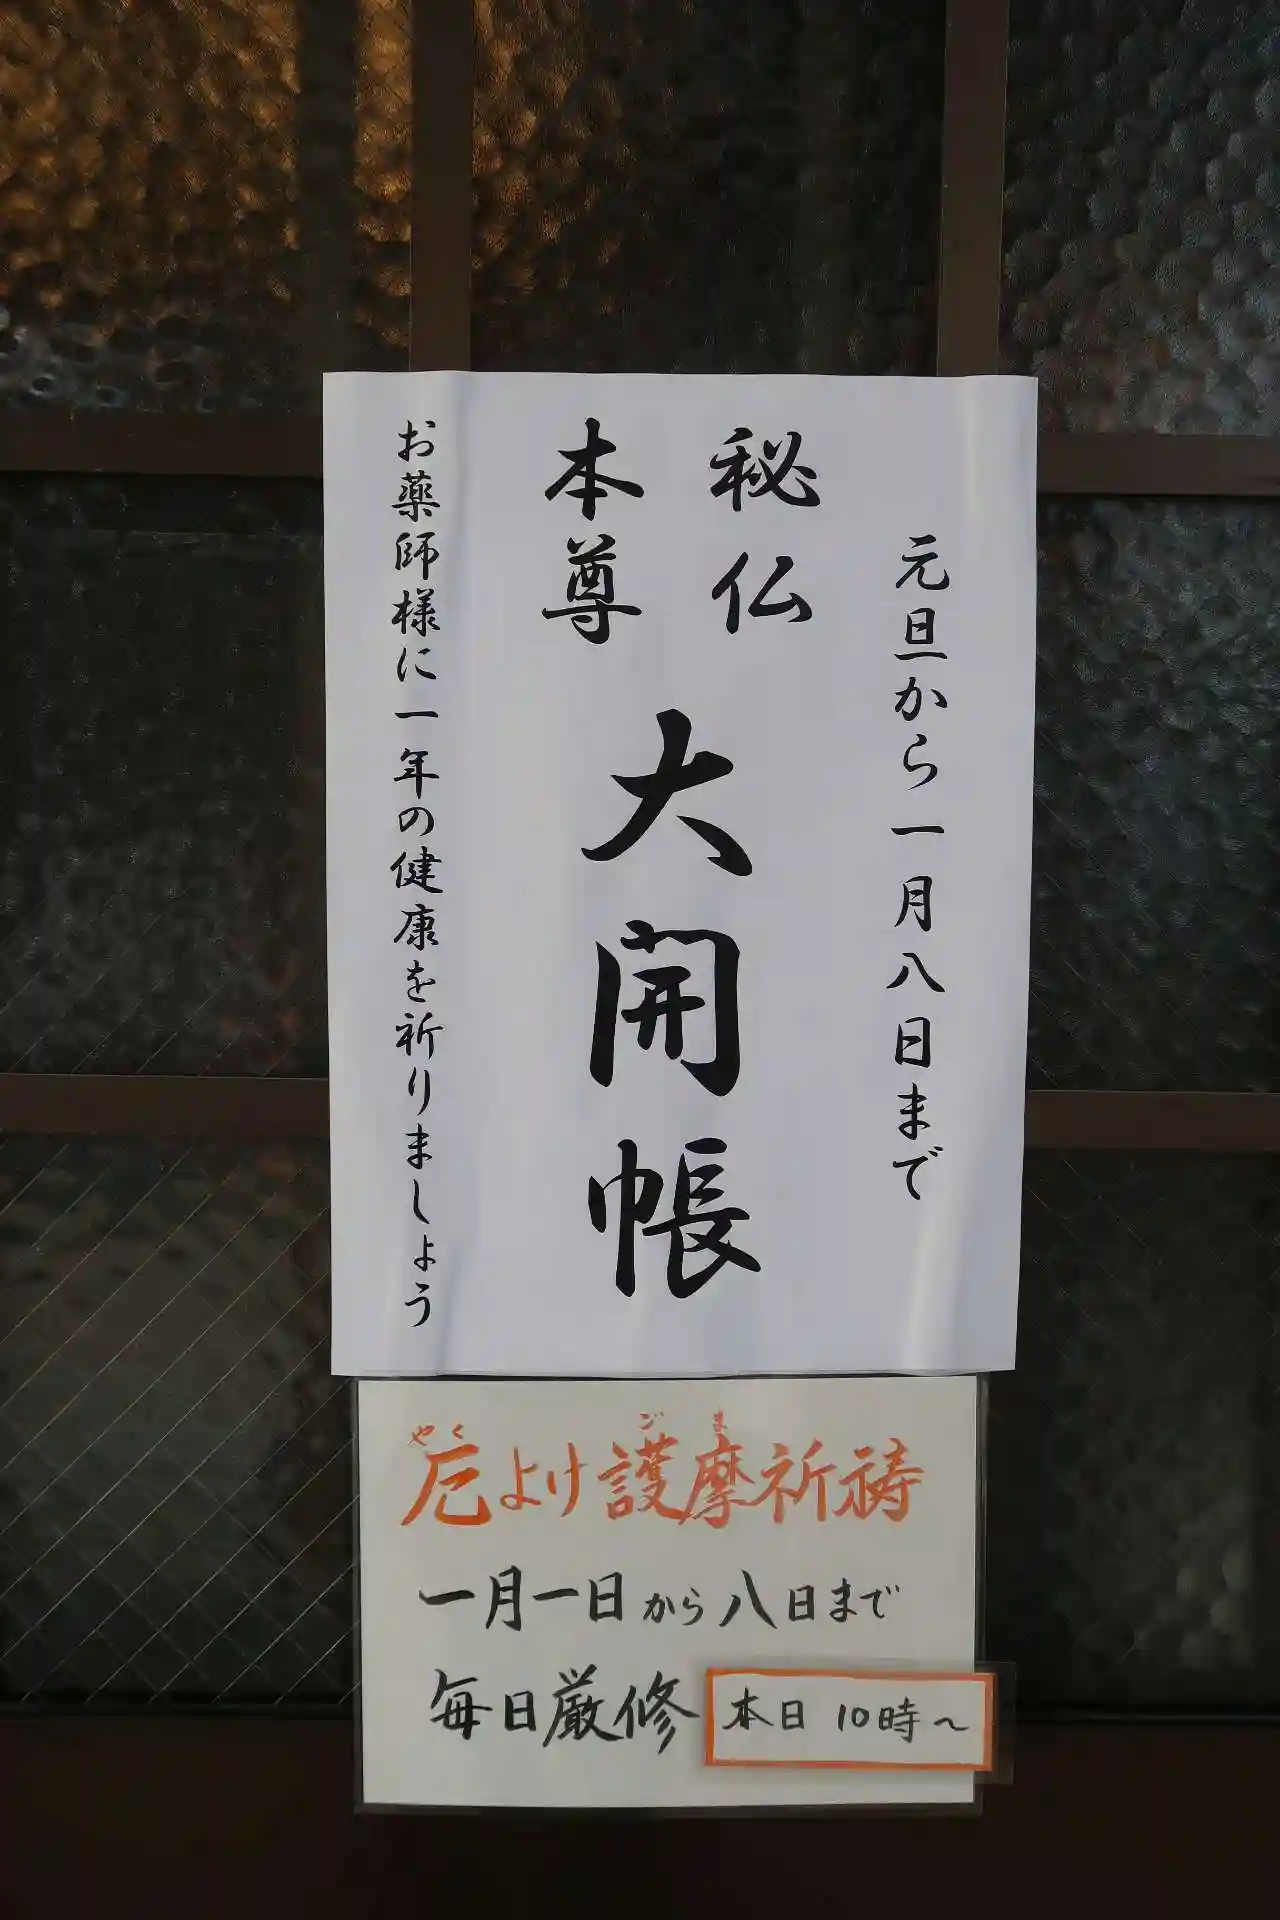 元旦から一月八日まで
秘仏
本尊
大開帳
お薬師様に一年の健康を祈りましょう
やく ごま
厄よけ護摩祈祷
一月一日から八日まで
毎日厳修
本日 10時~